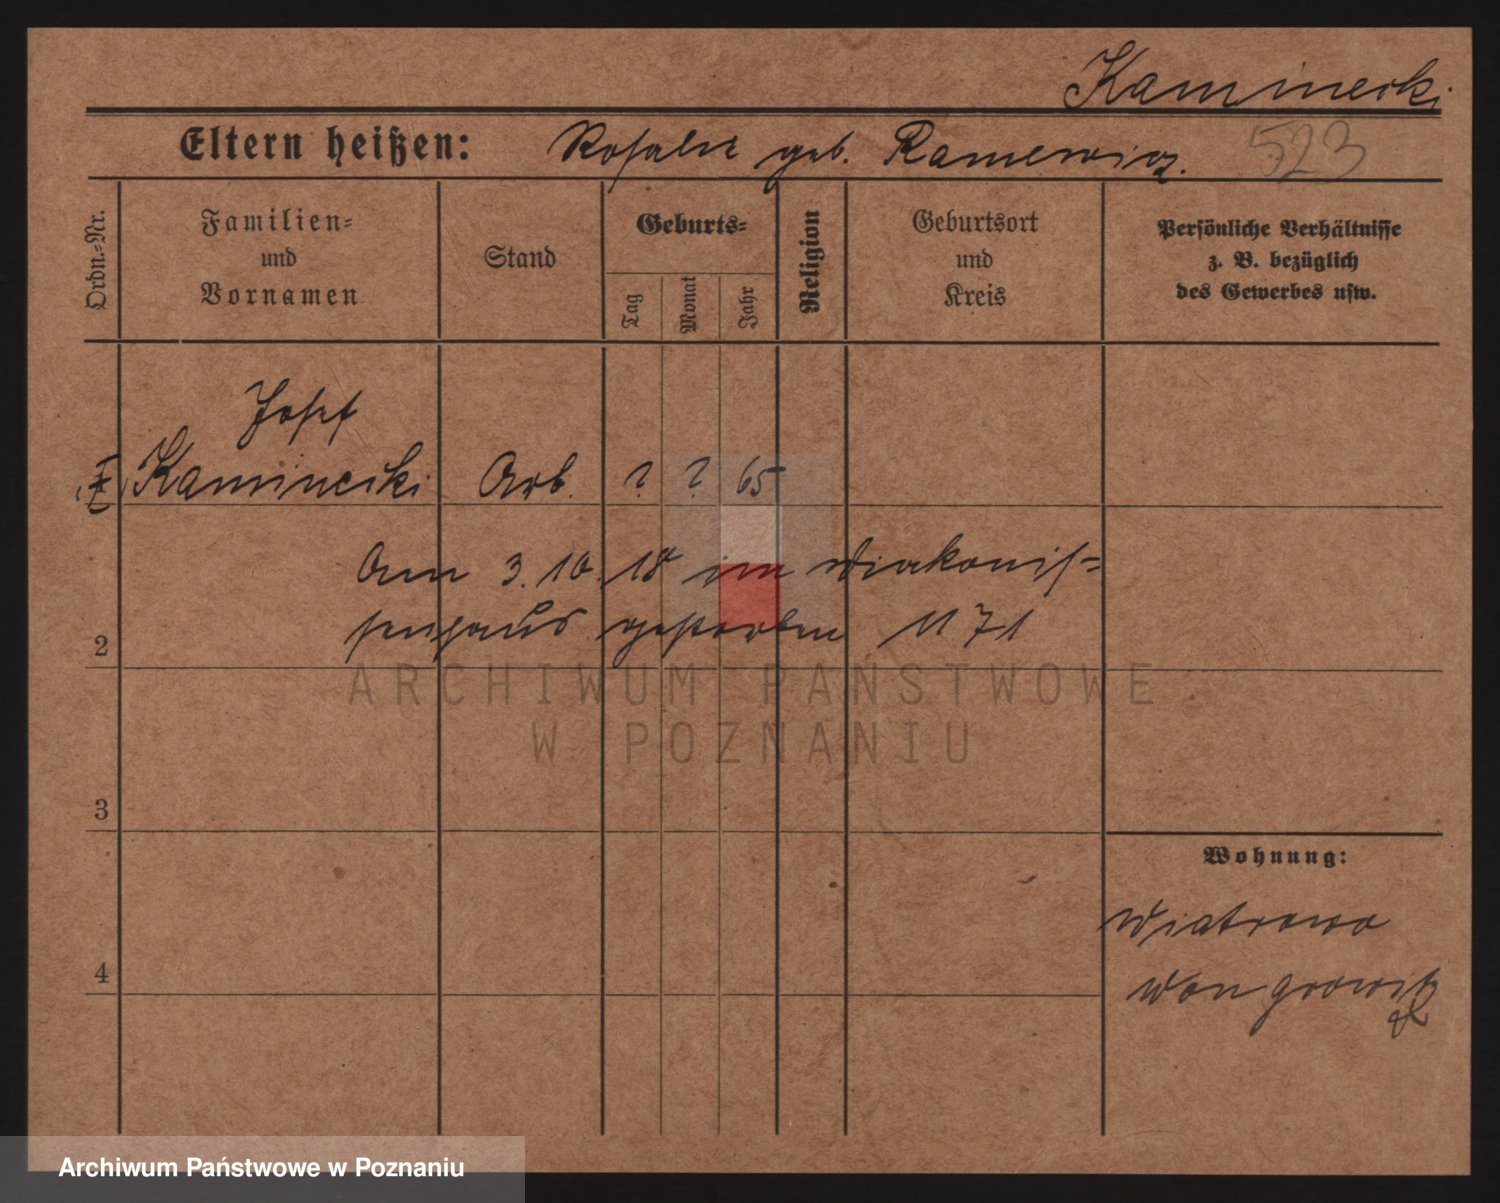 Kaminerki
Eltern heißen: Rosalie geb. Ramewicz. 523
Ordn.=Nr.
Familien=
und
Vornamen
Stand
Geburts=
Tag
Monat
Jahr
Religion
Geburtsort
und
Kreis
Persönliche Verhältnisse
z. B. bezüglich
des Gewerbes usw.
Josef
Kaminerki Arb. ? ? 65
Am 3.10.18 im Diakonis=
senhaus gestorben 1171
2
3
4
Wohnung:
Wiatrowo
Wongrowitz
ARCHIWUM PAŃSTWOWE
W POZNANIU
Archiwum Państwowe w Poznaniu